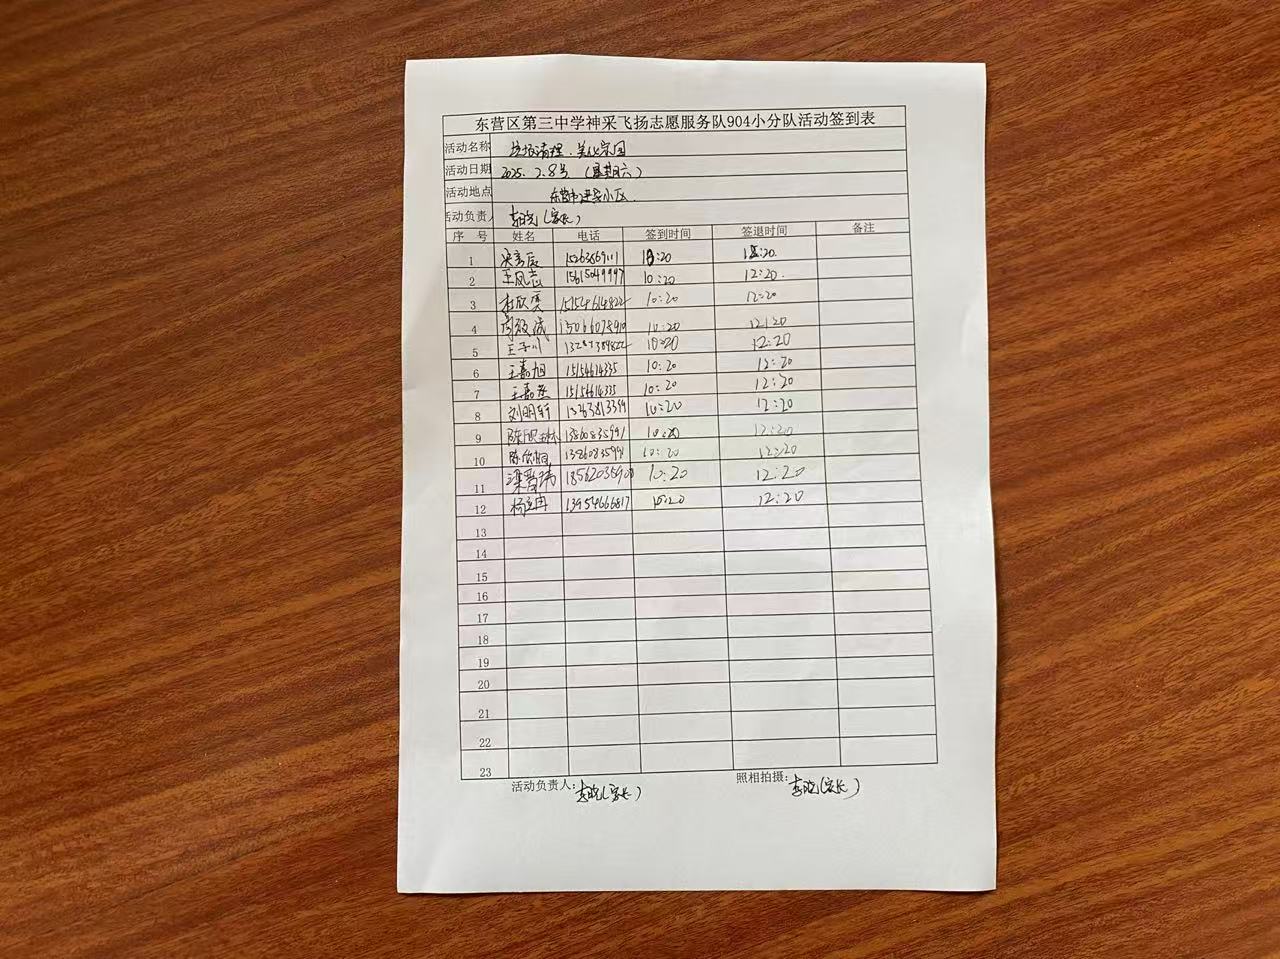 东营区第三中学神采飞扬志愿服务队904小分队活动签到表
活动名称 垃圾清理.美化家园
活动日期 2025.2.8号（星期六）
活动地点 东营市建安小区.
活动负责人 李晓(家长)
序 号 姓名 电话 签到时间 签退时间 备注
1 15263869111 10:20 12:20.
2 王凤志 15615049997 10:20 12:20.
3 杜欣 15154614822 10:20 12:20
4 10:20 12:20
5 王子川 10:20 12:20
6 王嘉旭 15154614335 10:20 12:20
7 王嘉 15154614335 10:20 12:20
8 刘明轩 10:20 12:20
9 陈 10:20 12:20
10 陈 10:20 12:20
11 10:20 12:20
12 杨 13954666817 10:20 12:20
13
14
15
16
17
18
19
20
21
22
23
活动负责人: 李晓(家长) 照相拍摄: 李晓(家长)